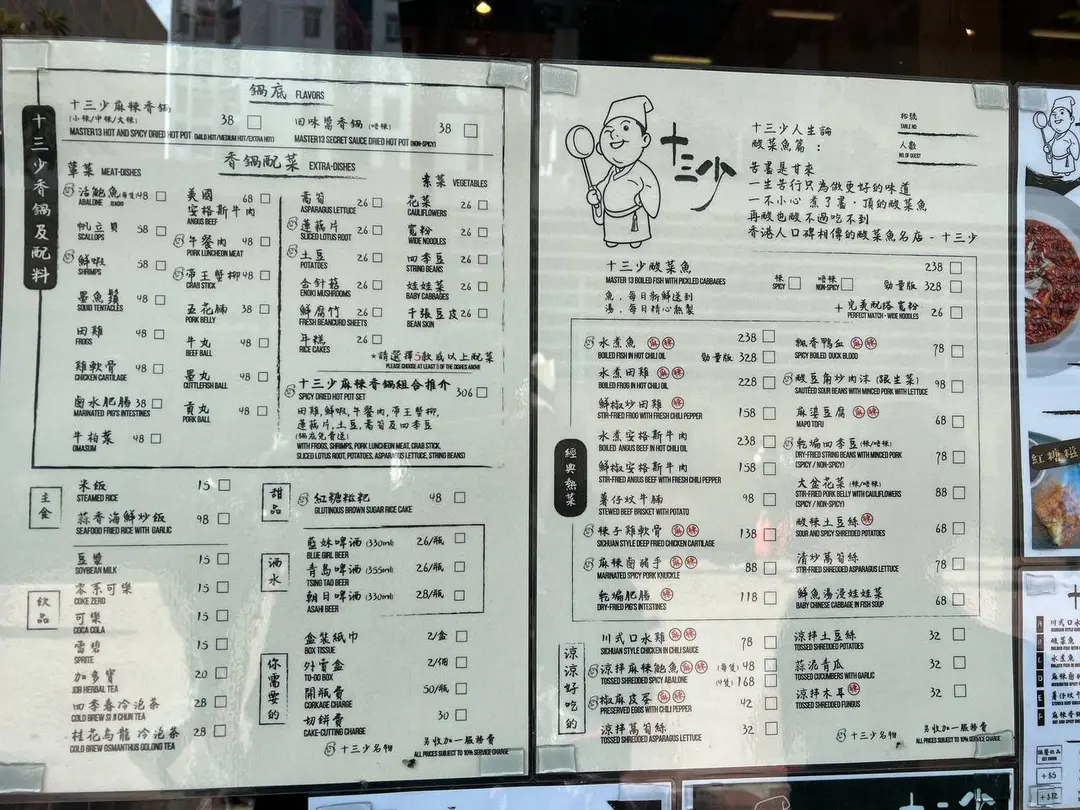 十三少香鍋及配料
鍋底 FLAVORS
十三少麻辣香鍋 38
(小辣/中辣/大辣)
MASTER13 HOT AND SPICY DRIED HOT POT (MILD HOT/MEDIUM HOT/EXTRA HOT)
旧味醬香鍋 (唔辣) 38
MASTER13 SECRET SAUCE DRIED HOT POT (NON-SPICY)
香鍋配菜 EXTRA-DISHES
葷菜 MEAT-DISHES
活鮑魚 (每隻) 48
ABALONE (EACH)
帆立貝 58
SCALLOPS
鮮蝦 58
SHRIMPS
墨魚鬚 48
SQUID TENTACLES
田雞 48
FROGS
雞軟骨 48
CHICKEN CARTILAGE
鹵水肥腸 38
MARINATED PIG'S INTESTINES
牛柏葉 48
OMASUM
美國 68
安格斯牛肉
ANGUS BEEF
午餐肉 48
PORK LUNCHEON MEAT
帝王蟹柳 48
CRAB STICK
五花腩 38
PORK BELLY
牛丸 48
BEEF BALL
墨丸 48
CUTTLEFISH BALL
貢丸 48
PORK BALL
素菜 VEGETABLES
萵筍 26
ASPARAGUS LETTUCE
蓮藕片 26
SLICED LOTUS ROOT
土豆 26
POTATOES
金針菇 26
ENOKI MUSHROOMS
鮮腐竹 26
FRESH BEANCURD SHEETS
年糕 26
RICE CAKES
花菜 26
CAULIFLOWERS
寬粉 26
WIDE NOODLES
四季豆 26
STRING BEANS
娃娃菜 26
BABY CABBAGES
千張豆皮 26
BEAN SKIN
*請選擇5款或以上配菜
PLEASE CHOOSE AT LEAST 5 OF THE DISHES ABOVE
十三少麻辣香鍋組合推介 306
SPICY DRIED HOT POT SET
田雞,鮮蝦,午餐肉,帝王蟹柳,
蓮藕片,土豆,萵筍及四季豆
(鍋底免費送)
WITH FROGS, SHRIMPS, PORK LUNCHEON MEAT, CRAB STICK,
SLICED LOTUS ROOT, POTATOES, ASPARAGUS LETTUCE, STRING BEANS)
主食
米飯 15
STEAMED RICE
蒜香海鮮炒飯 98
SEAFOOD FRIED RICE WITH GARLIC
飲品
豆漿 15
SOYBEAN MILK
零系可樂 15
COKE ZERO
可樂 15
COCA COLA
雪碧 15
SPRITE
加多寶 20
JDB HERBAL TEA
四季春冷泡茶 28
COLD BREW SI JI CHUN TEA
桂花烏龍冷泡茶 28
COLD BREW OSMANTHUS OOLONG TEA
甜品
紅糖糍粑 48
GLUTINOUS BROWN SUGAR RICE CAKE
酒水
藍妹啤酒 (330ml) 26/瓶
BLUE GIRL BEER
青島啤酒 (355ml) 26/瓶
TSING TAO BEER
朝日啤酒 (330ml) 28/瓶
ASAHI BEER
你需要的
盒裝紙巾 2/盒
BOX TISSUE
外賣盒 2/個
TO-GO BOX
開瓶費 50/瓶
CORKAGE CHARGE
切餅費 30
CAKE-CUTTING CHARGE
十三少名物
另收加一服務費
ALL PRICES SUBJECT TO 10% SERVICE CHARGE
十三少
十三少人生論
酸菜魚篇：
苦盡是甘來
一生苦行只為做更好的味道
一不小心煮了盡·頂的酸菜魚
再酸也酸不過吃不到
香港人口碑相傳的酸菜魚名店 - 十三少
枱號
TABLE NO
人數
NO. OF GUEST
十三少酸菜魚 238
MASTER 13 BOILED FISH WITH PICKLED CABBAGES
辣 SPICY 唔辣 NON-SPICY 勁量版 328
魚,每日新鮮送到
湯,每日精心熬製
+ 完美配搭寬粉 26
PERFECT MATCH - WIDE NOODLES
經典熱菜
水煮魚 麻辣 238
BOILED FISH IN HOT CHILI OIL 勁量版 328
水煮田雞 麻辣 228
BOILED FROG IN HOT CHILI OIL
鮮椒炒田雞 辣 158
STIR-FRIED FROG WITH FRESH CHILI PEPPER
水煮安格斯牛肉 238
BOILED ANGUS BEEF IN HOT CHILI OIL
鮮椒安格斯牛肉 158
STIR-FRIED ANGUS BEEF WITH FRESH CHILI PEPPER
薯仔炆牛腩 98
STEWED BEEF BRISKET WITH POTATO
辣子雞軟骨 麻辣 138
SICHUAN STYLE DEEP FRIED CHICKEN CARTILAGE
麻辣鹵豬手 麻辣 88
MARINATED SPICY PORK KNUCKLE
乾煸肥腸 辣 118
DRY-FRIED PIG'S INTESTINES
楓香鴨血 麻辣 78
SPICY BOILED DUCK BLOOD
酸豆角炒肉沫 (跟生菜) 98
SAUTÉED SOUR BEANS WITH MINCED PORK WITH LETTUCE
麻婆豆腐 麻辣 68
MAPO TOFU
乾煸四季豆 (辣/唔辣) 78
DRY-FRIED STRING BEANS WITH MINCED PORK
(SPICY / NON-SPICY)
大盆花菜 (辣/唔辣) 88
STIR-FRIED PORK BELLY WITH CAULIFLOWERS
(SPICY / NON-SPICY)
酸辣土豆絲 辣 68
SOUR AND SPICY SHREDDED POTATOES
清炒萵筍絲 78
STIR-FRIED SHREDDED ASPARAGUS LETTUCE
鮮魚湯浸娃娃菜 68
BABY CHINESE CABBAGE IN FISH SOUP
涼涼好吃的
川式口水雞 麻辣 78
SICHUAN STYLE CHICKEN IN CHILI SAUCE
涼拌麻辣鮑魚 麻辣 (每隻) 48
TOSSED SHREDDED SPICY ABALONE (4隻) 168
椒麻皮蛋 麻辣 42
PRESERVED EGGS WITH CHILI PEPPER
涼拌萵筍絲 32
TOSSED SHREDDED ASPARAGUS LETTUCE
涼拌土豆絲 32
TOSSED SHREDDED POTATOES
蒜泥青瓜 32
TOSSED CUCUMBERS WITH GARLIC
涼拌木耳 辣 32
TOSSED SHREDDED FUNGUS
十三少名物
另收加一服務費
ALL PRICES SUBJECT TO 10% SERVICE CHARGE
紅糖糍
川式口水
酸菜魚
水煮魚
十三少